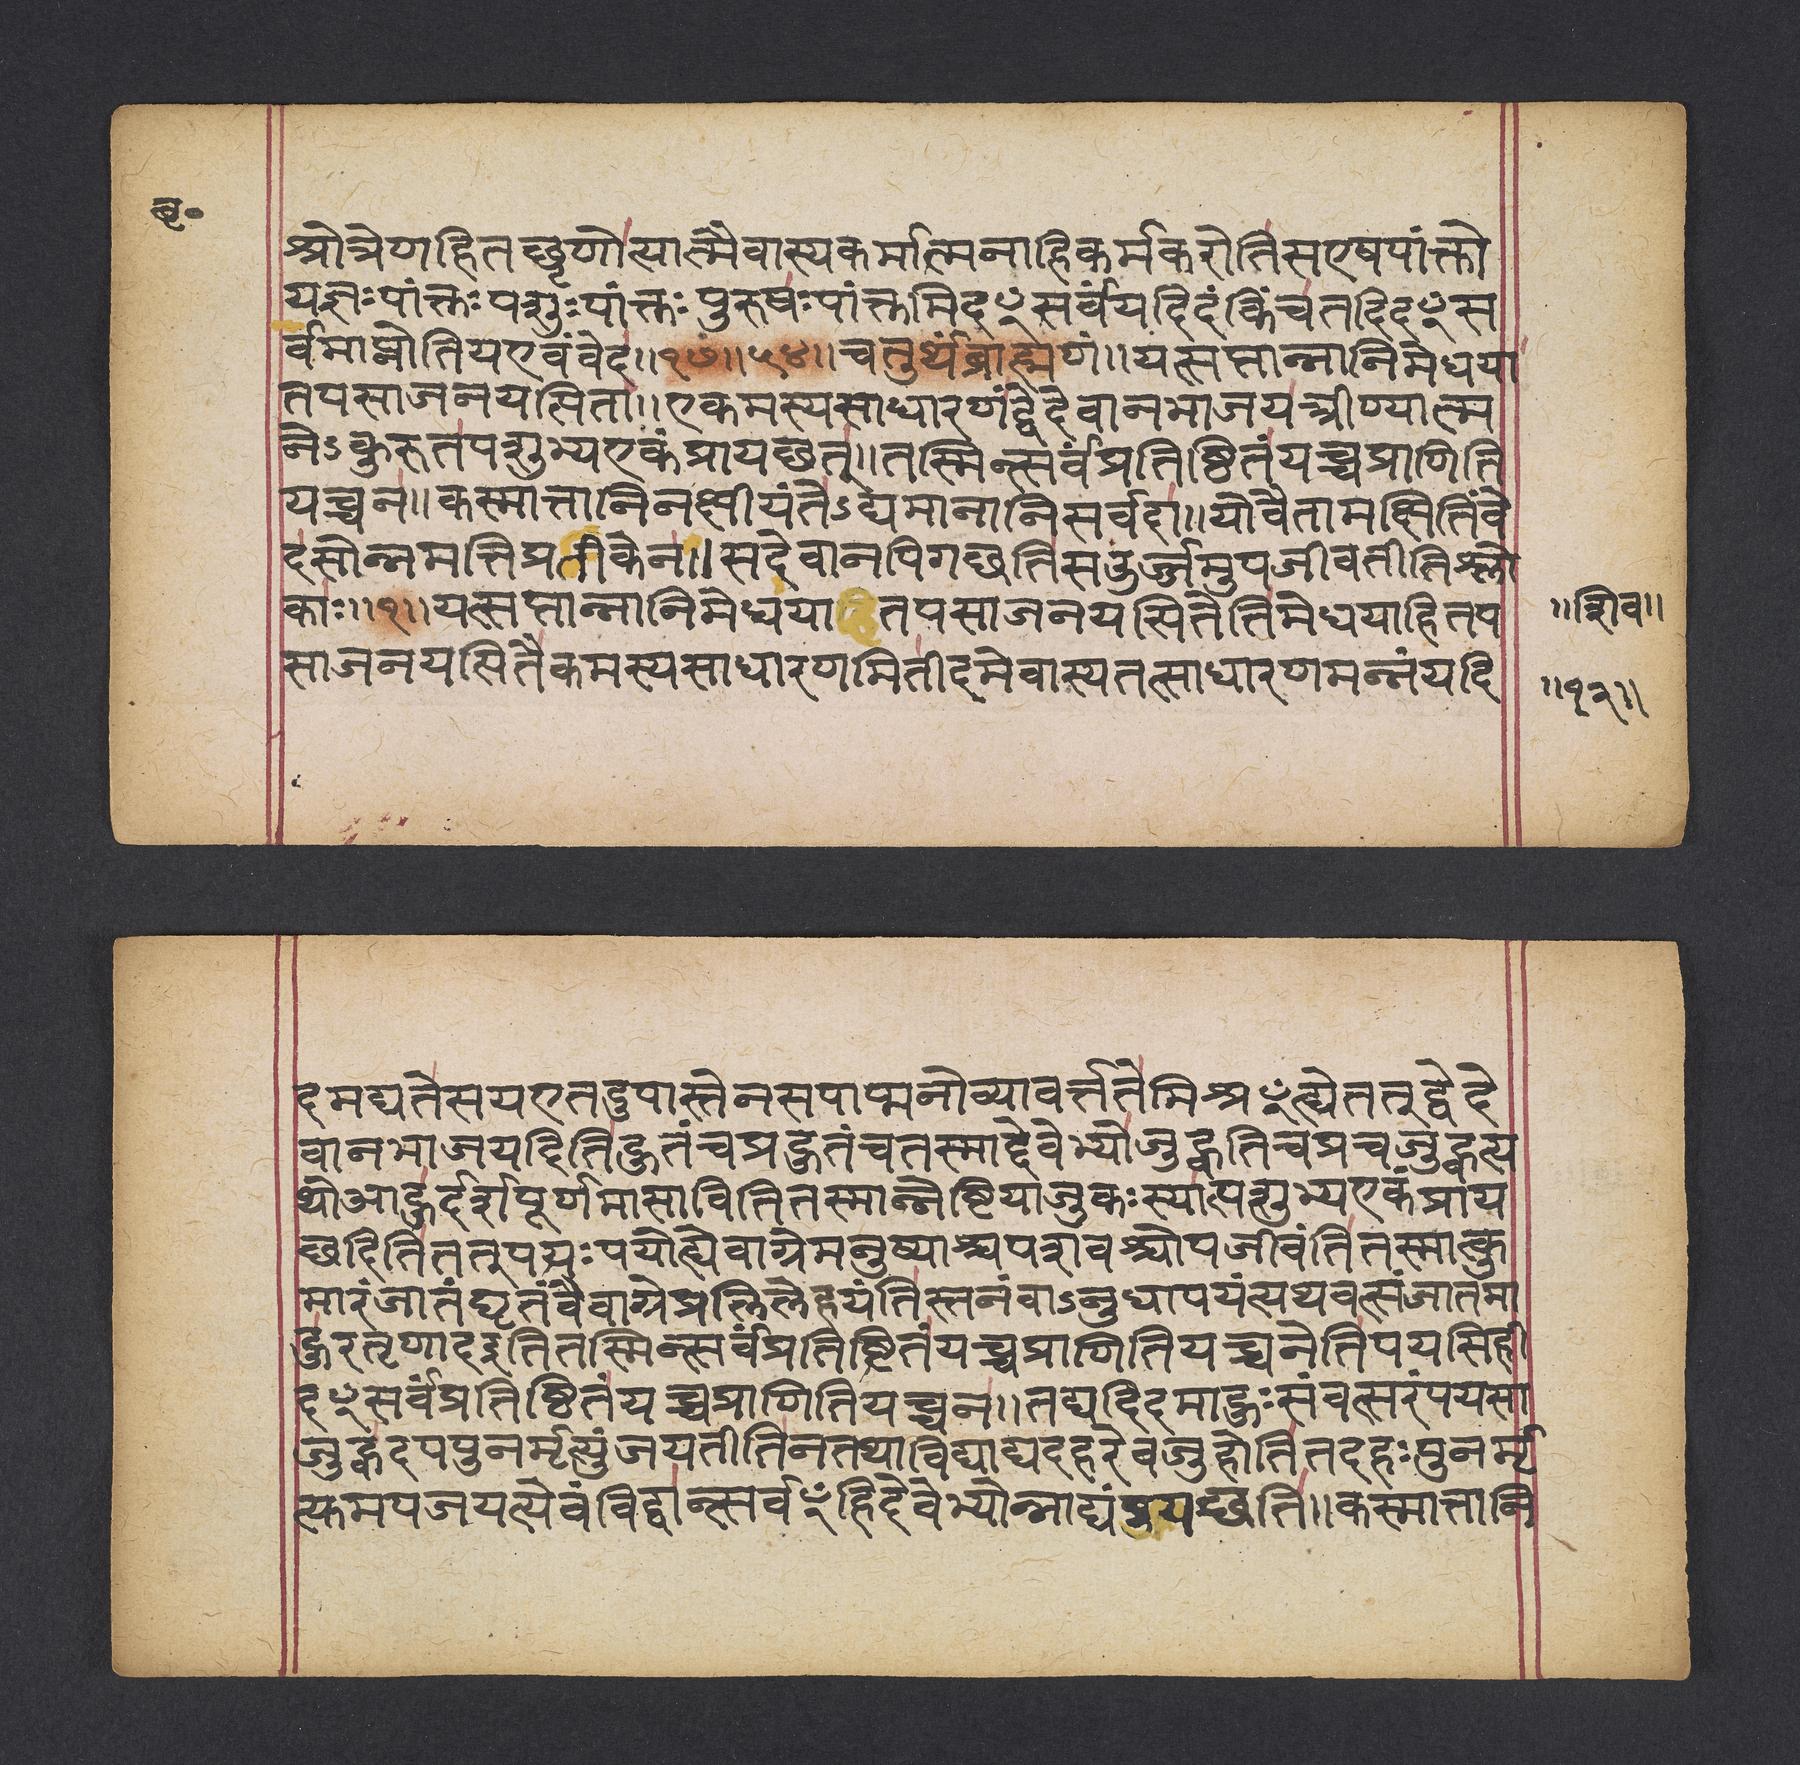 बृ०
श्रोत्रेणहितछृणोत्यात्मैवास्यकर्मात्मनाहिकर्मकरोतिसएषपांक्तो
यज्ञःपांक्तःपशुःपांक्तःपुरुषःपांक्तमिदꣳसर्वंयदिदंकिंचतदिदꣳस
र्वमाप्नोतियएवंवेद॥१७॥५४॥चतुर्थंब्राह्मणं॥यत्सप्तान्नानिमेधया
तपसाजनयत्पिता॥एकमस्यसाधारणंद्वेदेवानभाजयत्त्रीण्यात्म
नेऽकुरुतपशुभ्यएकंप्रायछत्॥तस्मिन्त्सर्वंप्रतिष्ठितंयच्चप्राणिति
यच्चन॥कस्मात्तानिनक्षीयंतेऽद्यमानानिसर्वदा॥योवैतामक्षितिंवे
दसोन्नमत्तिप्रतीकेन॥सदेवानपिगछतिसउर्ज्जमुपजीवतीतिश्लो
काः॥१॥यत्सप्तान्नानिमेधया तपसाजनयत्पितेतिमेधयाहितप
॥शिव॥
साजनयत्पितैकमस्यसाधारणमितीदमेवास्यतत्साधारणमन्नंयदि
॥१२॥
दमद्यतेसयएतदुपास्तेनसपाप्मनोव्यावर्त्ततेमिश्रꣳह्येतत्द्वेदे
वानभाजयदितिहुतंचप्रहुतंचतस्माद्देवेभ्योजुह्वतिचप्रचजुह्वत्य
थोआहुर्दर्शपूर्णमासावितितस्मान्नेष्टियाजुकःस्यात्पशुभ्यएकंप्राय
छदितितत्पयःपयोह्येवाग्रेमनुष्याश्चपशवश्चोपजीवंतितस्मात्कु
मारंजातंघृतंवैवाग्रेप्रतिलेहयंतिस्तनंवाऽनुधापयंत्यथवत्संजातमा
हुरतृणादइतितस्मिन्त्सर्वंप्रतिष्ठितंयच्चप्राणितियच्चनेतिपयसिही
दꣳसर्वंप्रतिष्ठितंयच्चप्राणितियच्चन॥तद्यदिदमाहुःसंवत्सरंपयसा
जुह्वदपपुनर्मृत्युंजयतीतिनतथाविद्याद्यदहरेवजुहोतितदहःपुनर्मृ
त्युमपजयत्येवंविद्वान्त्सर्वꣳहिदेवेभ्योन्नाद्यंप्रयछति॥कस्मात्तानि